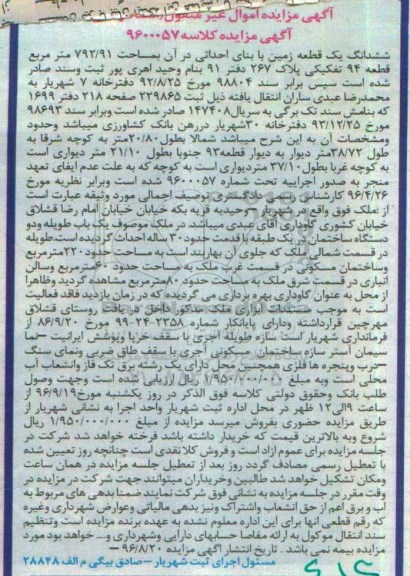 آگهی مزایده اموال غیر منقول
آگهی مزایده کلاسه ۹۶۰۰۰۵۷
ششدانگ یک قطعه زمین با بنای احداثی در آن بمساحت ۷۹۲/۹۱ متر مربع
قطعه ۹۴ تفکیکی پلاک ۲۶۷ دفتر ۹۱ بنام وحید اهری پور ثبت وسند صادر
شده است سپس برابر سند ۹۸۸۰۴ مورخ ۹۲/۸/۲۵ دفترخانه ۷ شهریار به
محمدرضا عبدی ساران انتقال یافته ذیل ثبت ۲۲۹۸۶۵ صفحه ۲۱۸ دفتر ۱۶۹۹
که بنامش سند تک برگی به سریال ۱۴۷۴۰۸ صادر شده است وبرابر سند ۹۸۶۹۳
مورخ ۹۳/۱۲/۲۵ دفترخانه ۳۰ شهریار دررهن بانک کشاورزی میباشد وحدود
ومشخصات آن به این شرح میباشد شمالا بطول ۲۰/۸۰ متر به کوچه شرقا به
طول ۳۸/۷۲ متر دیوار به دیوار قطعه ۹۳ جنوبا بطول ۲۱/۱۰ متر دیواری است
به کوچه غربا بطول ۳۷/۱۰ متردیواری است به کوچه که به علت عدم ایفای تعهد
منجر به صدور اجراییه تحت شماره ۹۶۰۰۰۵۷ شده است وبرابر نظریه مورخ
۹۶/۴/۲۶ کارشناس رسمی دادگستری توصیف اجمالی مورد وثیقه عبارت است
از :ملک فوق واقع در شهریار –وحیدیه قریه بکه خیابان خیابان امام رضا قشلاق
خیابان کشوری گاوداری آقای عبدی میباشد در ملک موصوف یک باب طویله ودو
دستگاه ساختمان در یک طبقه با قدمت حدود ۳۰ ساله احداث گردیده است.طویله
در قسمت شمالی ملک که جلوی آن بهاربند است به مساحت حدود ۲۲۰ مترمربع
وساختمان مسکونی در قسمت غرب ملک به مساحت حدود ۶۰ مترمربع وسالن
انباری در قسمت شرق ملک به مساحت حدود ۸۰ مترمربع مشاهده گردید وظاهرا
از محل به عنوان گاوداری بهره برداری می گردیده که در زمان بازدید فاقد فعالیت
است به موجب مستندات ابرازی ملک مذکور داخل در بافت روستای قشلاق
مهرچین قرارداشته ودارای پایانکار شماره ۲۳۵۸-۲۴-۹۹ مورخ ۸۶/۹/۲۰ از
فرمانداری شهریار است سازه طویله آجری با سقف خرپا وپوشش ایرانیت –نما
سیمان آستر سازه ساختمان مسکونی آجری با سقف طاق ضربی ونمای سنگ
–درب وپنجره ها فلزی همچنین محل دارای یک رشته برق تک فاز وانشعاب آب
محلی است وبه مبلغ ۱/۹۵۰/۰۰۰/۰۰۰ ریال ارزیابی شده است وجهت وصول
طلب بانک وحقوق دولتی کلاسه فوق الذکر در روز یکشنبه مورخ ۹۶/۹/۱۹ از
ساعت ۹الی ۱۲ ظهر در محل اداره ثبت شهریار واحد اجرا به نشانی شهریار از
طریق مزایده حضوری بفروش میرسد مزایده از مبلغ ۱/۹۵۰/۰۰۰/۰۰۰ ریال
شروع وبه بالاترین قیمت که خریدار داشته باشد فرخته خواهد شد شرکت در
جلسه مزایده برای عموم ازاد است و فروش کلا نقدی است چنانچه روز تعیین شده
با تعطیل رسمی مصادف گردد روز بعد از تعطیل جلسه مزایده در همان ساعت
ومکان تشکیل خواهد شد طالبین وخریداران میتوانند جهت شرکت در مزایده در
وقت مقرر در جلسه مزایده به نشانی فوق شرکت نمایند ضمنا بدهی های مربوط به
آب و برق اعم از حق انشعاب واشتراک ونیز بدهی مالیاتی وعوارض شهرداری وغیره
که رقم قطعی انها برای این اداره معلوم نشده به عهده برنده مزایده است وتنظیم
سند انتقال موکول به ارائه مفاصا حسابهای دارایی وشهرداری و... خواهد بود مورد
مزایده بیمه نمی باشد . تاریخ انتشار اگهی مزایده ۹۶/۸/۲۰ –
مسئول اجرای ثبت شهریار –صادق بیگی م الف ۲۸۸۴۸